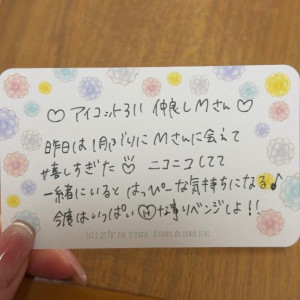 ♡ アイコットろい 仲良し Mさん ♡
昨日は1月ぶりに Mさんに会えて
嬉しすぎた♡ ニコニコしてて
一緒にいると はっぴーな気持ちになる♪
今度はいっぱい Ⓗな事リベンジしよ!!